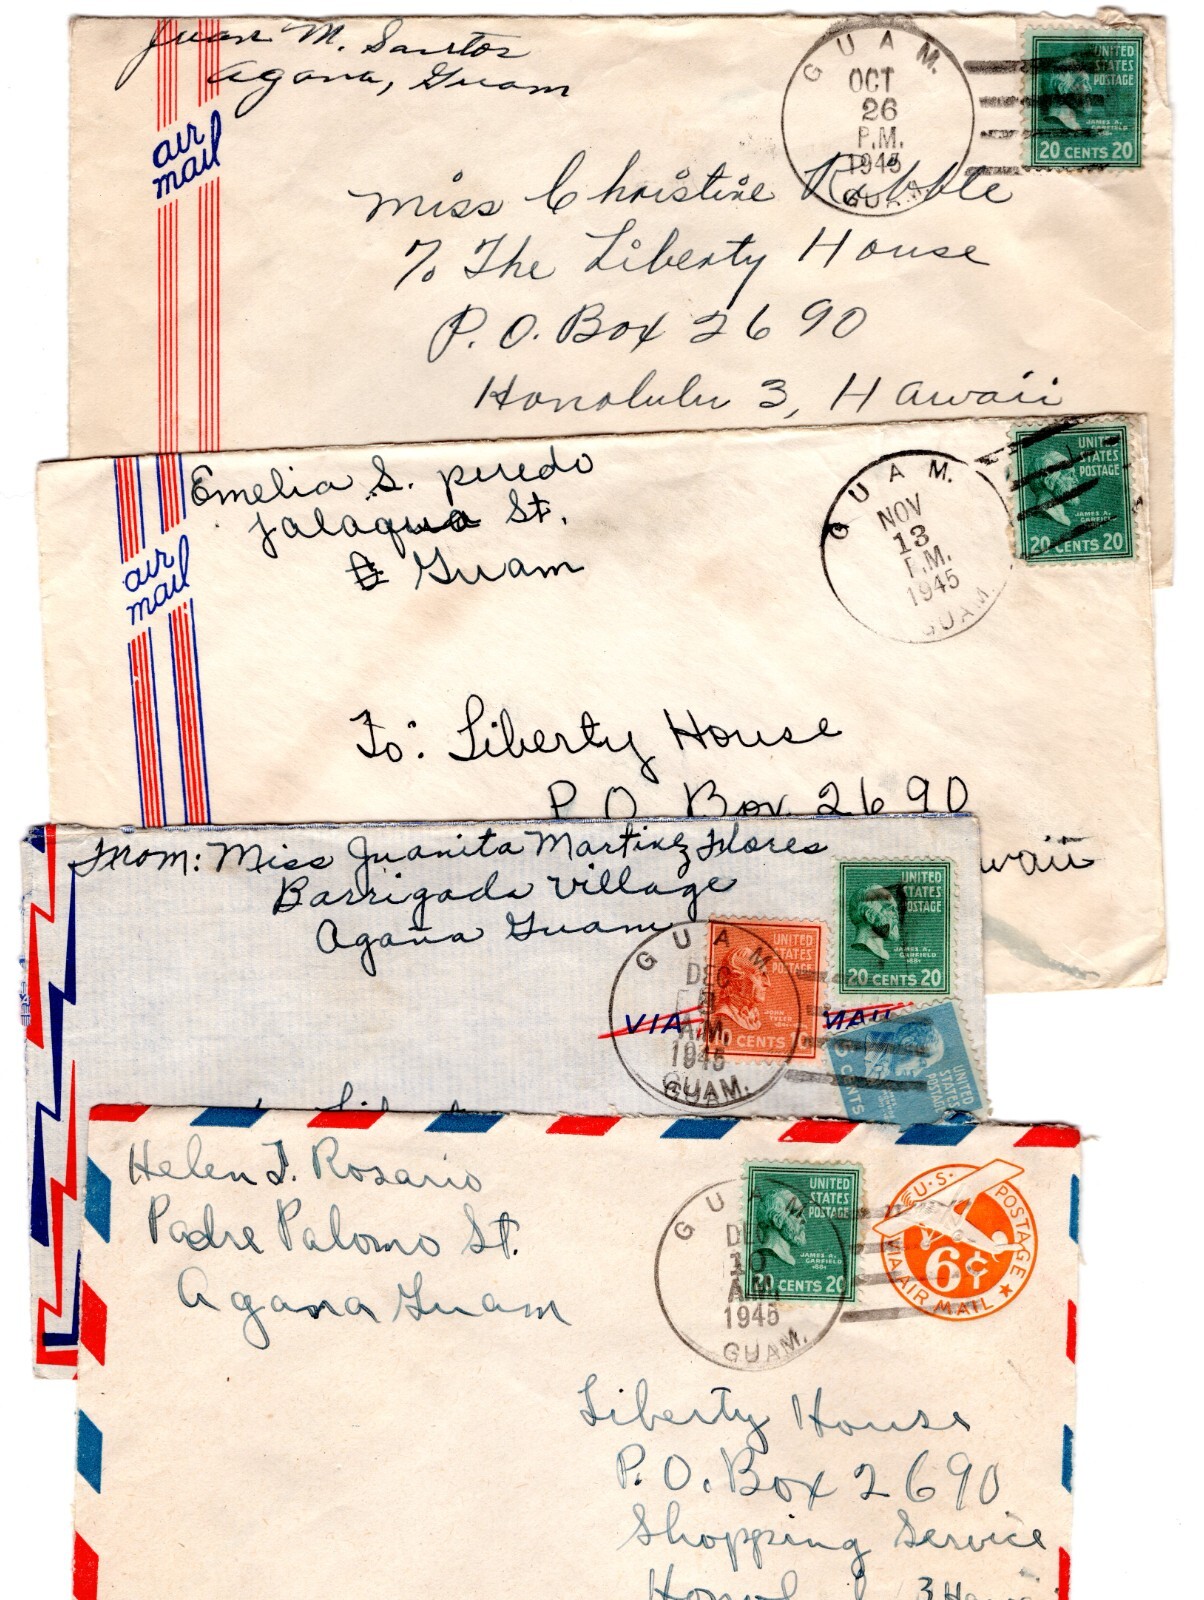 Juan M. Santos
Agana, Guam
air
mail
GUAM.
OCT
26
P.M.
1945
GUAM
UNITED
STATES
POSTAGE
JAMES A.
GARFIELD
20 CENTS 20
Miss Christine
℅ The Liberty House
P.O. Box 2690
Honolulu 3, Hawaii
Emelia S. peredo
St.
Guam
air
mail
GUAM.
NOV
13
P.M.
1945
GUAM
UNITED
STATES
POSTAGE
JAMES A.
GARFIELD
20 CENTS 20
To: Liberty House
P.O. Box 2690
waii
From: Miss Juanita Martinez Flores
Barrigada Village
Agaña Guam
GUAM.
DEC
A.M.
1945
GUAM.
VIA
UNITED
STATES
POSTAGE
JOHN
TYLER
CENTS
UNITED
STATES
POSTAGE
JAMES A.
GARFIELD
20 CENTS 20
UNITED
STATES
POSTAGE
CENTS
Helen T. Rosario
Padre Palomo St.
Agana Guam
GUAM
DEC
10
A.M.
1945
GUAM.
UNITED
STATES
POSTAGE
JAMES A.
GARFIELD
20 CENTS 20
U.S. POSTAGE
6¢
VIA AIR MAIL
Liberty House
P.O. Box 2690
Shopping Service
3